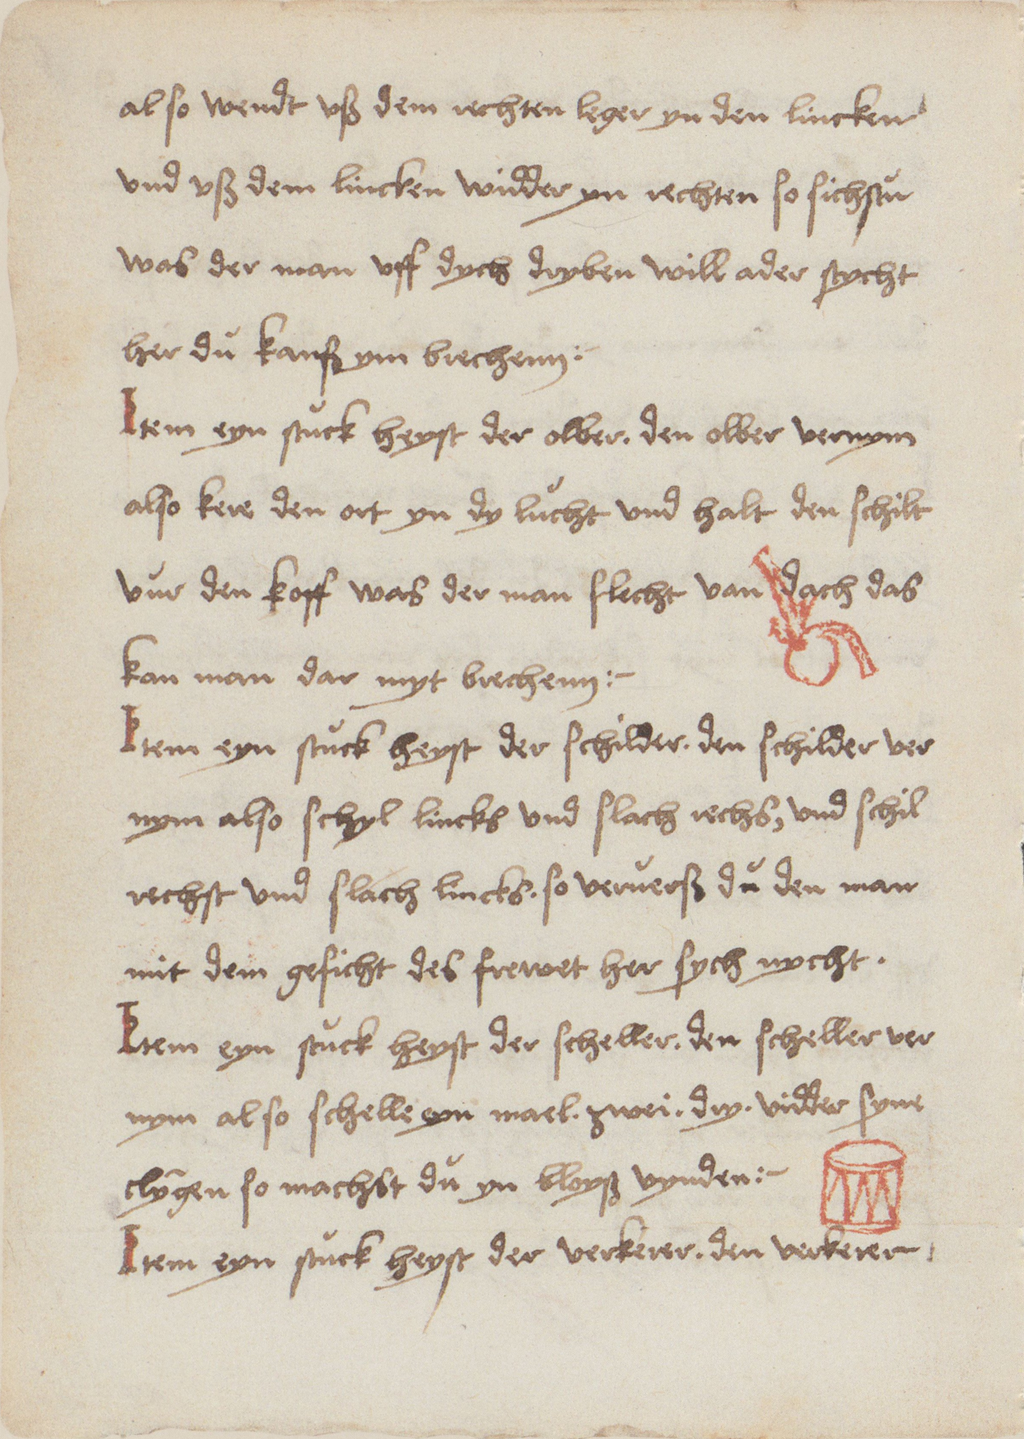 also wendt vß dem rechten leger yn den lincken
vnd vß dem lincken widder yn rechten so sichstu
was der man vff dych dryben will ader stycht
her dü kanß ym brechenn:-
Item eyn stück heyst der olber. den olber vernym
also kere den ort yn dy lücht vnd halt den schilt
vür den koff was der man slecht van dach das
kan man dar myt brechenn:-
Item eyn stück heyst der schilder. den schilder ver
nym also schyl lincks vnd slach rechs, vnd schil
rechst vnd slach lincks. so verüerß dü den man
mit dem gesicht des frewet her sych nycht.
Item eyn stück heyst der scheller. den scheller ver
nym also schelle eyn mael. zwei. dry. vidder syne
clyngen so machst dü yn bloyß vynden:-
Item eyn stück heyst der verkerer. den verkerer